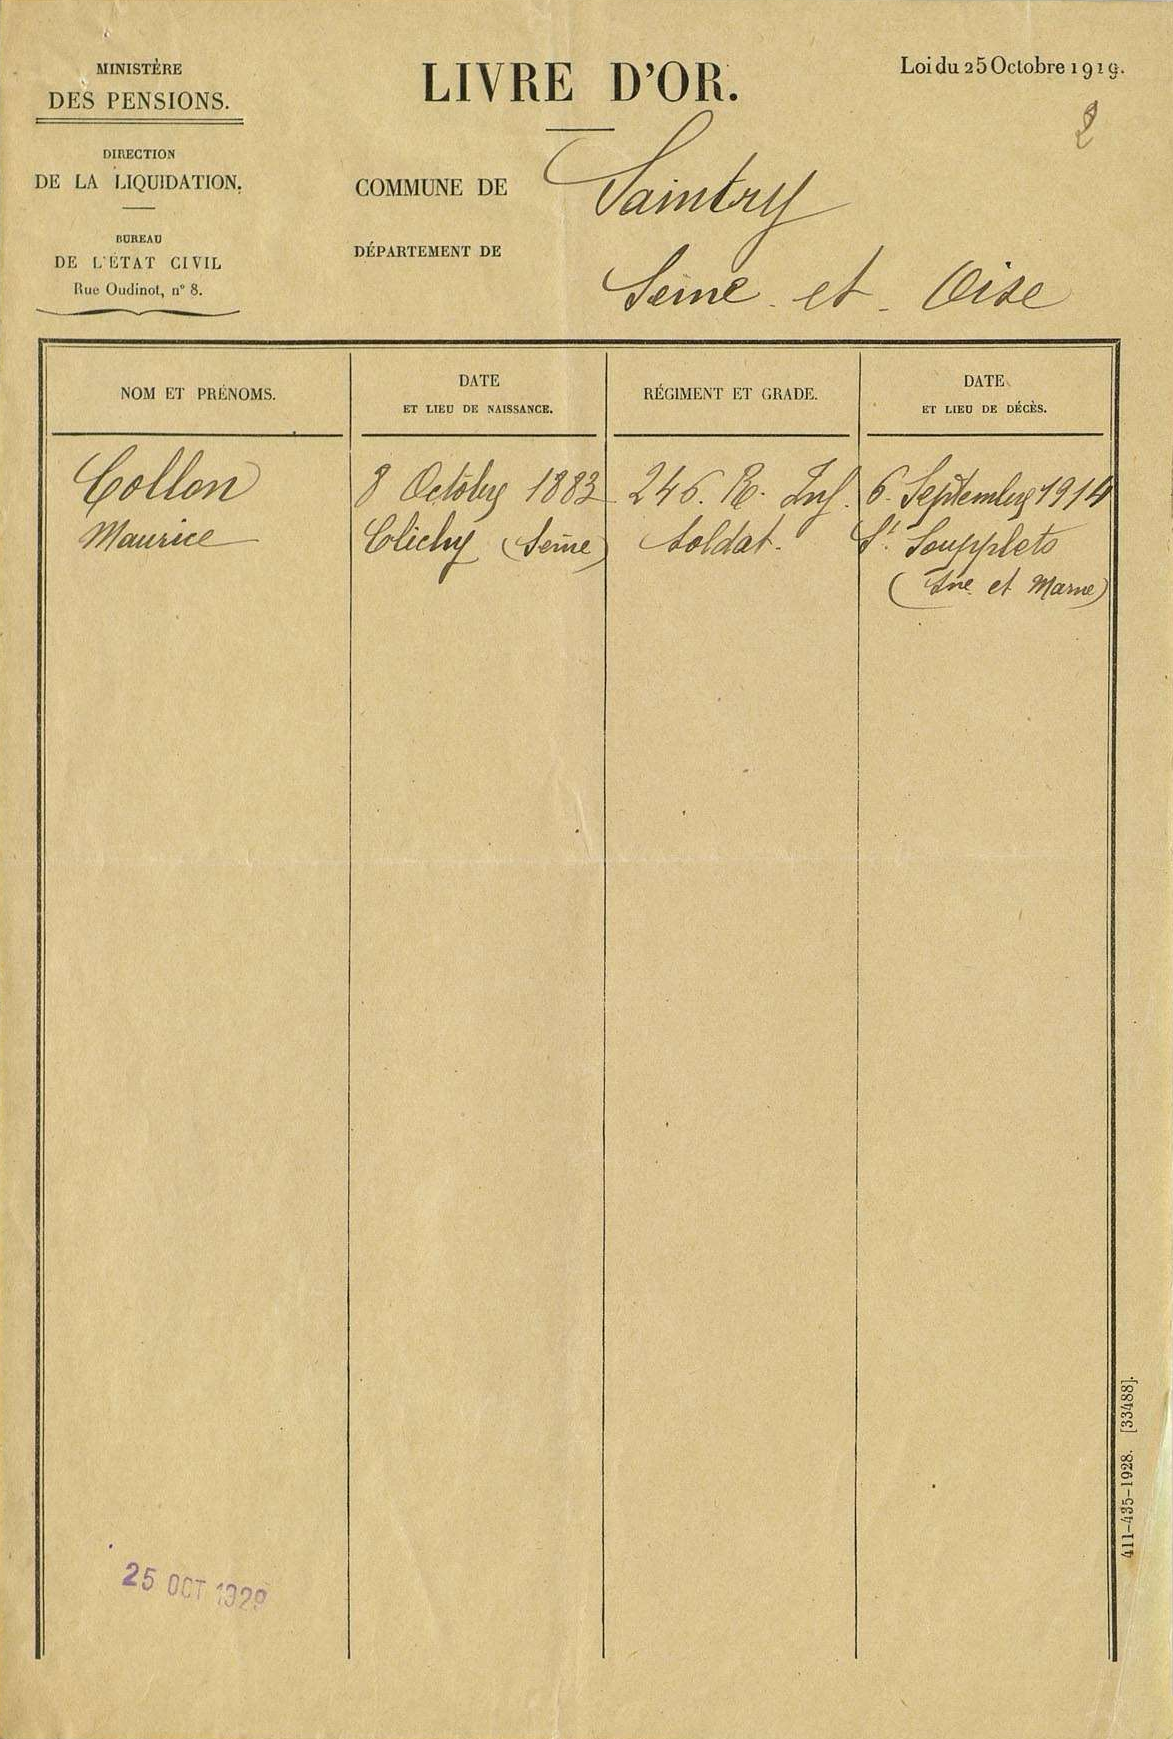 MINISTÈRE
DES PENSIONS.
DIRECTION
DE LA LIQUIDATION.
BUREAU
DE L'ÉTAT CIVIL
Rue Oudinot, n° 8.
LIVRE D'OR.
Loi du 25 Octobre 1919.
2
COMMUNE DE Saintry
DÉPARTEMENT DE
Seine - et - Oise
NOM ET PRÉNOMS.
DATE
ET LIEU DE NAISSANCE.
RÉGIMENT ET GRADE.
DATE
ET LIEU DE DÉCÈS.
Collon 8 Octobre 1883 246. R. Inf. 6 Septembre 1914
Maurice Clichy (Seine) Soldat. St Soupplets
(Sne et Marne)
411-435-1928. [33488].
25 OCT 1929